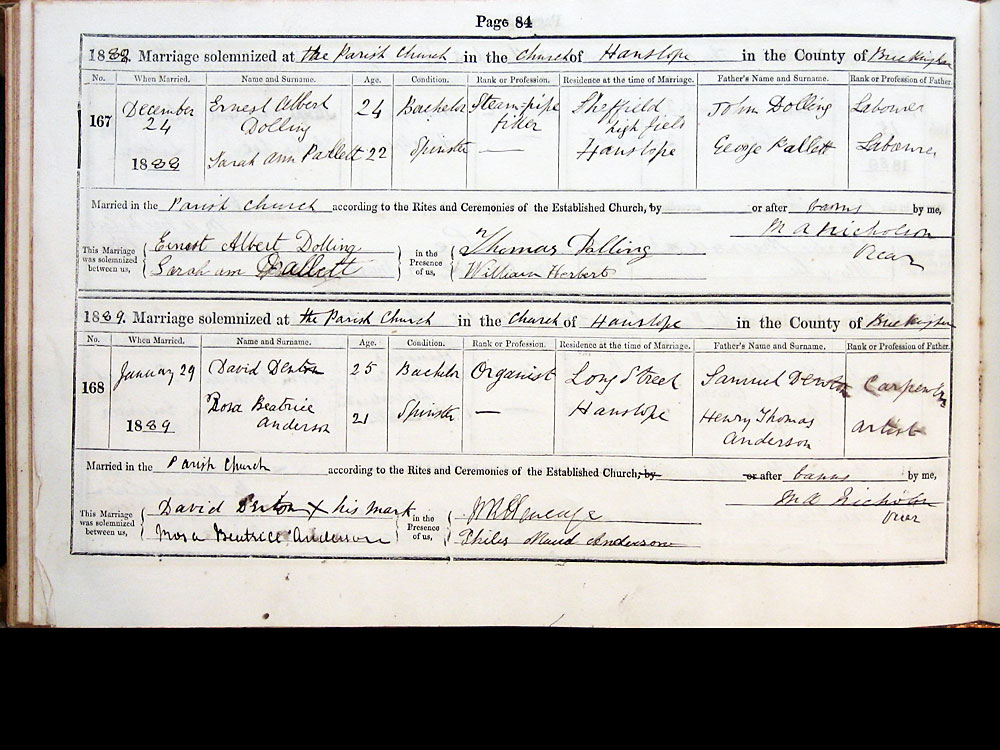 Page 84
1888. Marriage solemnized at the Parish Church in the Church of Hanslope in the County of Buckingham
No. When Married. Name and Surname. Age. Condition. Rank or Profession. Residence at the time of Marriage. Father's Name and Surname. Rank or Profession of Father.
167 December 24 1888 Ernest Albert Dolling 24 Bachelor Steam-pipe Sheffield high field John Dolling Labourer
Sarah Ann Pallett 22 Spinster — Hanslope George Pallett Labourer
Married in the Parish Church according to the Rites and Ceremonies of the Established Church, by or after banns by me,
M A Nicholson
Vicar
This Marriage was solemnized between us, Ernest Albert Dolling in the Presence of us, Thomas
Sarah ann Pallett William Herbert
1889. Marriage solemnized at the Parish Church in the Church of Hanslope in the County of Buckingham
No. When Married. Name and Surname. Age. Condition. Rank or Profession. Residence at the time of Marriage. Father's Name and Surname. Rank or Profession of Father.
168 January 29 1889 David Denton 25 Bachelor Organist Long Street Samuel Denton Carpenter
Rosa Beatrice Anderson 21 Spinster — Hanslope Henry Thomas Anderson artist
Married in the Parish Church according to the Rites and Ceremonies of the Established Church, by or after banns by me,
M A Nicholson
Vicar
This Marriage was solemnized between us, David Denton X his mark in the Presence of us,
Rosa Beatrice Anderson Maud Anderson